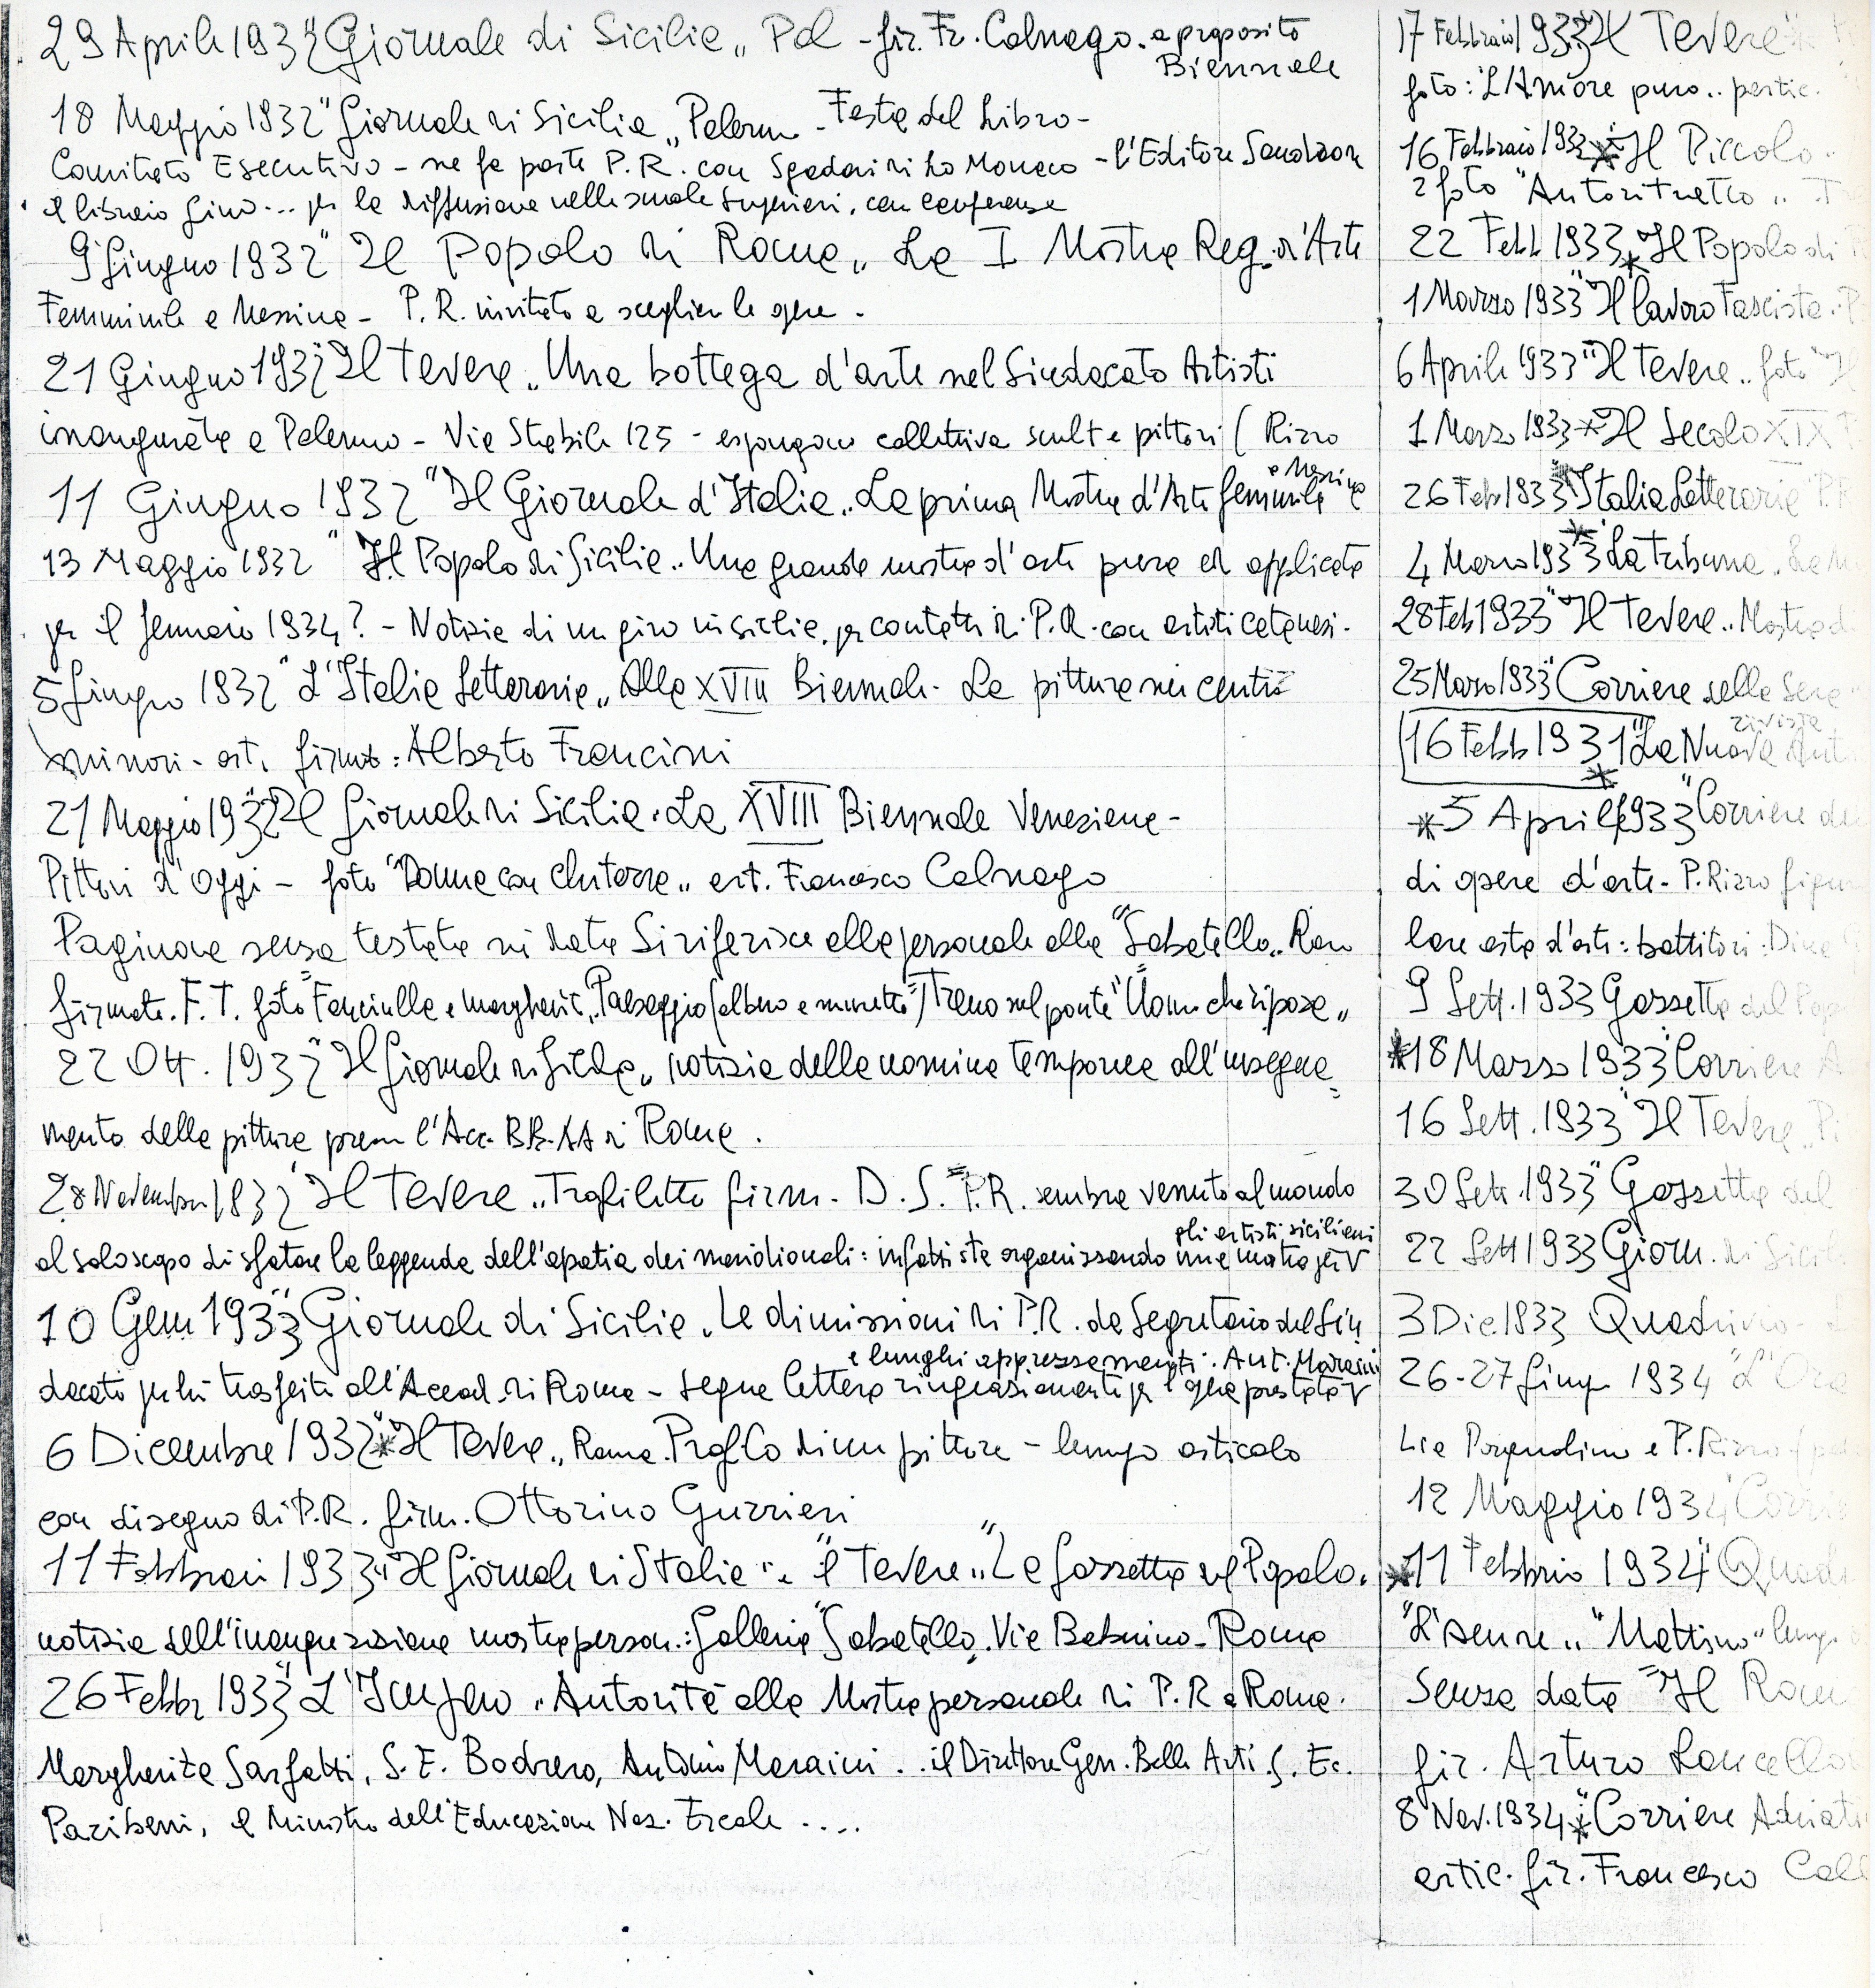 29 Aprile 1932 "Giornale di Sicilia„ Pal - fir. Fr. Colnago. a proposito
Biennale
18 Maggio 1932 "Giornale di Sicilia„ Palermo - Festa del Libro -
Comitato Esecutivo - ne fa parte P.R. con Sgadari di Lo Monaco - l'Editore Sandron
il libraio Gino... per la diffusione nelle scuole superiori, con conferenze
9 Giugno 1932 "Il Popolo di Roma„ La I Mostra Reg. d'Arte
Femminile a Messina - P.R. invitato a scegliere le opere.
21 Giugno 1932 "Il Tevere„ Una bottega d'arte nel Sindacato Artisti
inaugurata a Palermo - Via Stabile 125 - espongono collettiva scult e pittori (Rizzo
11 Giugno 1932 "Il Giornale d'Italia„ La prima Mostra d'Arte femminile a Messina
13 Maggio 1932 "Il Popolo di Sicilia„ Una grande mostra d'arte pura ed applicata
per il Gennaio 1934? - Notizie di un giro in Sicilia, per contatti di P.R. con artisti catanesi.
5 Giugno 1932 "L'Italia Letteraria„ Alla XVIII Biennale. La pittura nei centri
minori - art. firmato: Alberto Francini
21 Maggio 1932 "Il Giornale di Sicilia. La XVIII Biennale Veneziana -
Pittori d'Oggi - foto "Donne con chitarra„ art. Francesco Colnago
Paginone senza testata ni data Si riferisce alla personale alla "Sabatello„ Rom
firmato. F.T. foto "Fanciulla e margherite„ "Paesaggio (albero e muretto) "Treno sul ponte" "Uomo che riposa„
22 04. 1932 "Il Giornale di Sicilia„ notizia della nomina temporanea all'insegna=
mento della pittura presso l'Acc. BB.AA di Roma.
28 Novembre 1932 "Il Tevere„ Trafiletto firm. D.S. "P.R. sembra venuto al mondo
al solo scopo di sfatare la leggenda dell'apatia dei meridionali: infatti sta organizzando una mostra per gli artisti siciliani
10 Genn 1933 "Giornale di Sicilia. Le dimissioni di P.R. da Segretario del Sin
dacato perché trasferito all'Accad. di Roma - segue lettera ringraziamenti per l'opera prestata e lunghi apprezzamenti. Ant. Maraini
6 Dicembre 1932 * "Il Tevere„ Roma. Profilo di un pittore - lungo articolo
con disegno di P.R. firm. Ottorino Gurrieri
11 Febbraio 1933 "Il Giornale di Italia" "il Tevere„ "La Gazzetta del Popolo.
notizia dell'inaugurazione mostra person.: Galleria "Sabatello. Via Babuino - Roma
26 Febbr 1933 "L'Impero „Autorità alla Mostra personale di P.R a Roma.
Margherita Sarfatti, S.E. Bodrero, Antonio Maraini.. il Direttore Gen. Belle Arti S. Ec.
Paribeni, il Ministro dell'Educazione Naz. Ercole ....
17 Febbraio 1933 "Il Tevere"
foto: L'Amore puro.. partic.
16 Febbraio 1933 * Il Piccolo.
2 foto "Autoritratto„
22 Febb 1933 * "Il Popolo di
1 Marzo 1933 "Il Lavoro Fascista.
6 Aprile 1933 "Il Tevere„ foto "Il
1 Marzo 1933 * Il Secolo XIX
26 Feb 1933 * "Italia Letteraria P.R
4 Marzo 1933 * "La Tribuna„ La M
28 Feb 1933 "Il Tevere„ Mostra d
25 Marzo 1933 "Corriere della Sera
16 Febb 1931 "La Nuova Ant
rivista
* 5 Aprile 1933 "Corriere de
di opere d'arte - P. Rizzo figu
lare asta d'arte: battitori: Dina
9 Sett. 1933 Gazzetta del Pop
* 18 Marzo 1933 "Corriere A
16 Sett. 1933 "Il Tevere„ Pi
30 Sett. 1933 "Gazzetta del
22 Sett 1933 Giorn. di Sicil
3 Dic. 1933 Quadrivio -
26-27 Giug 1934 "L'Ora
Lia Pasqualino e P. Rizzo
12 Maggio 1934 "Corri
* 11 Febbraio 1934 "Quad
"Mattino" lungo
Senza data "Il Rom
fir. Arturo Lancello
8 Nov. 1934 * "Corriere Adriati
artic. fir. Francesco Call